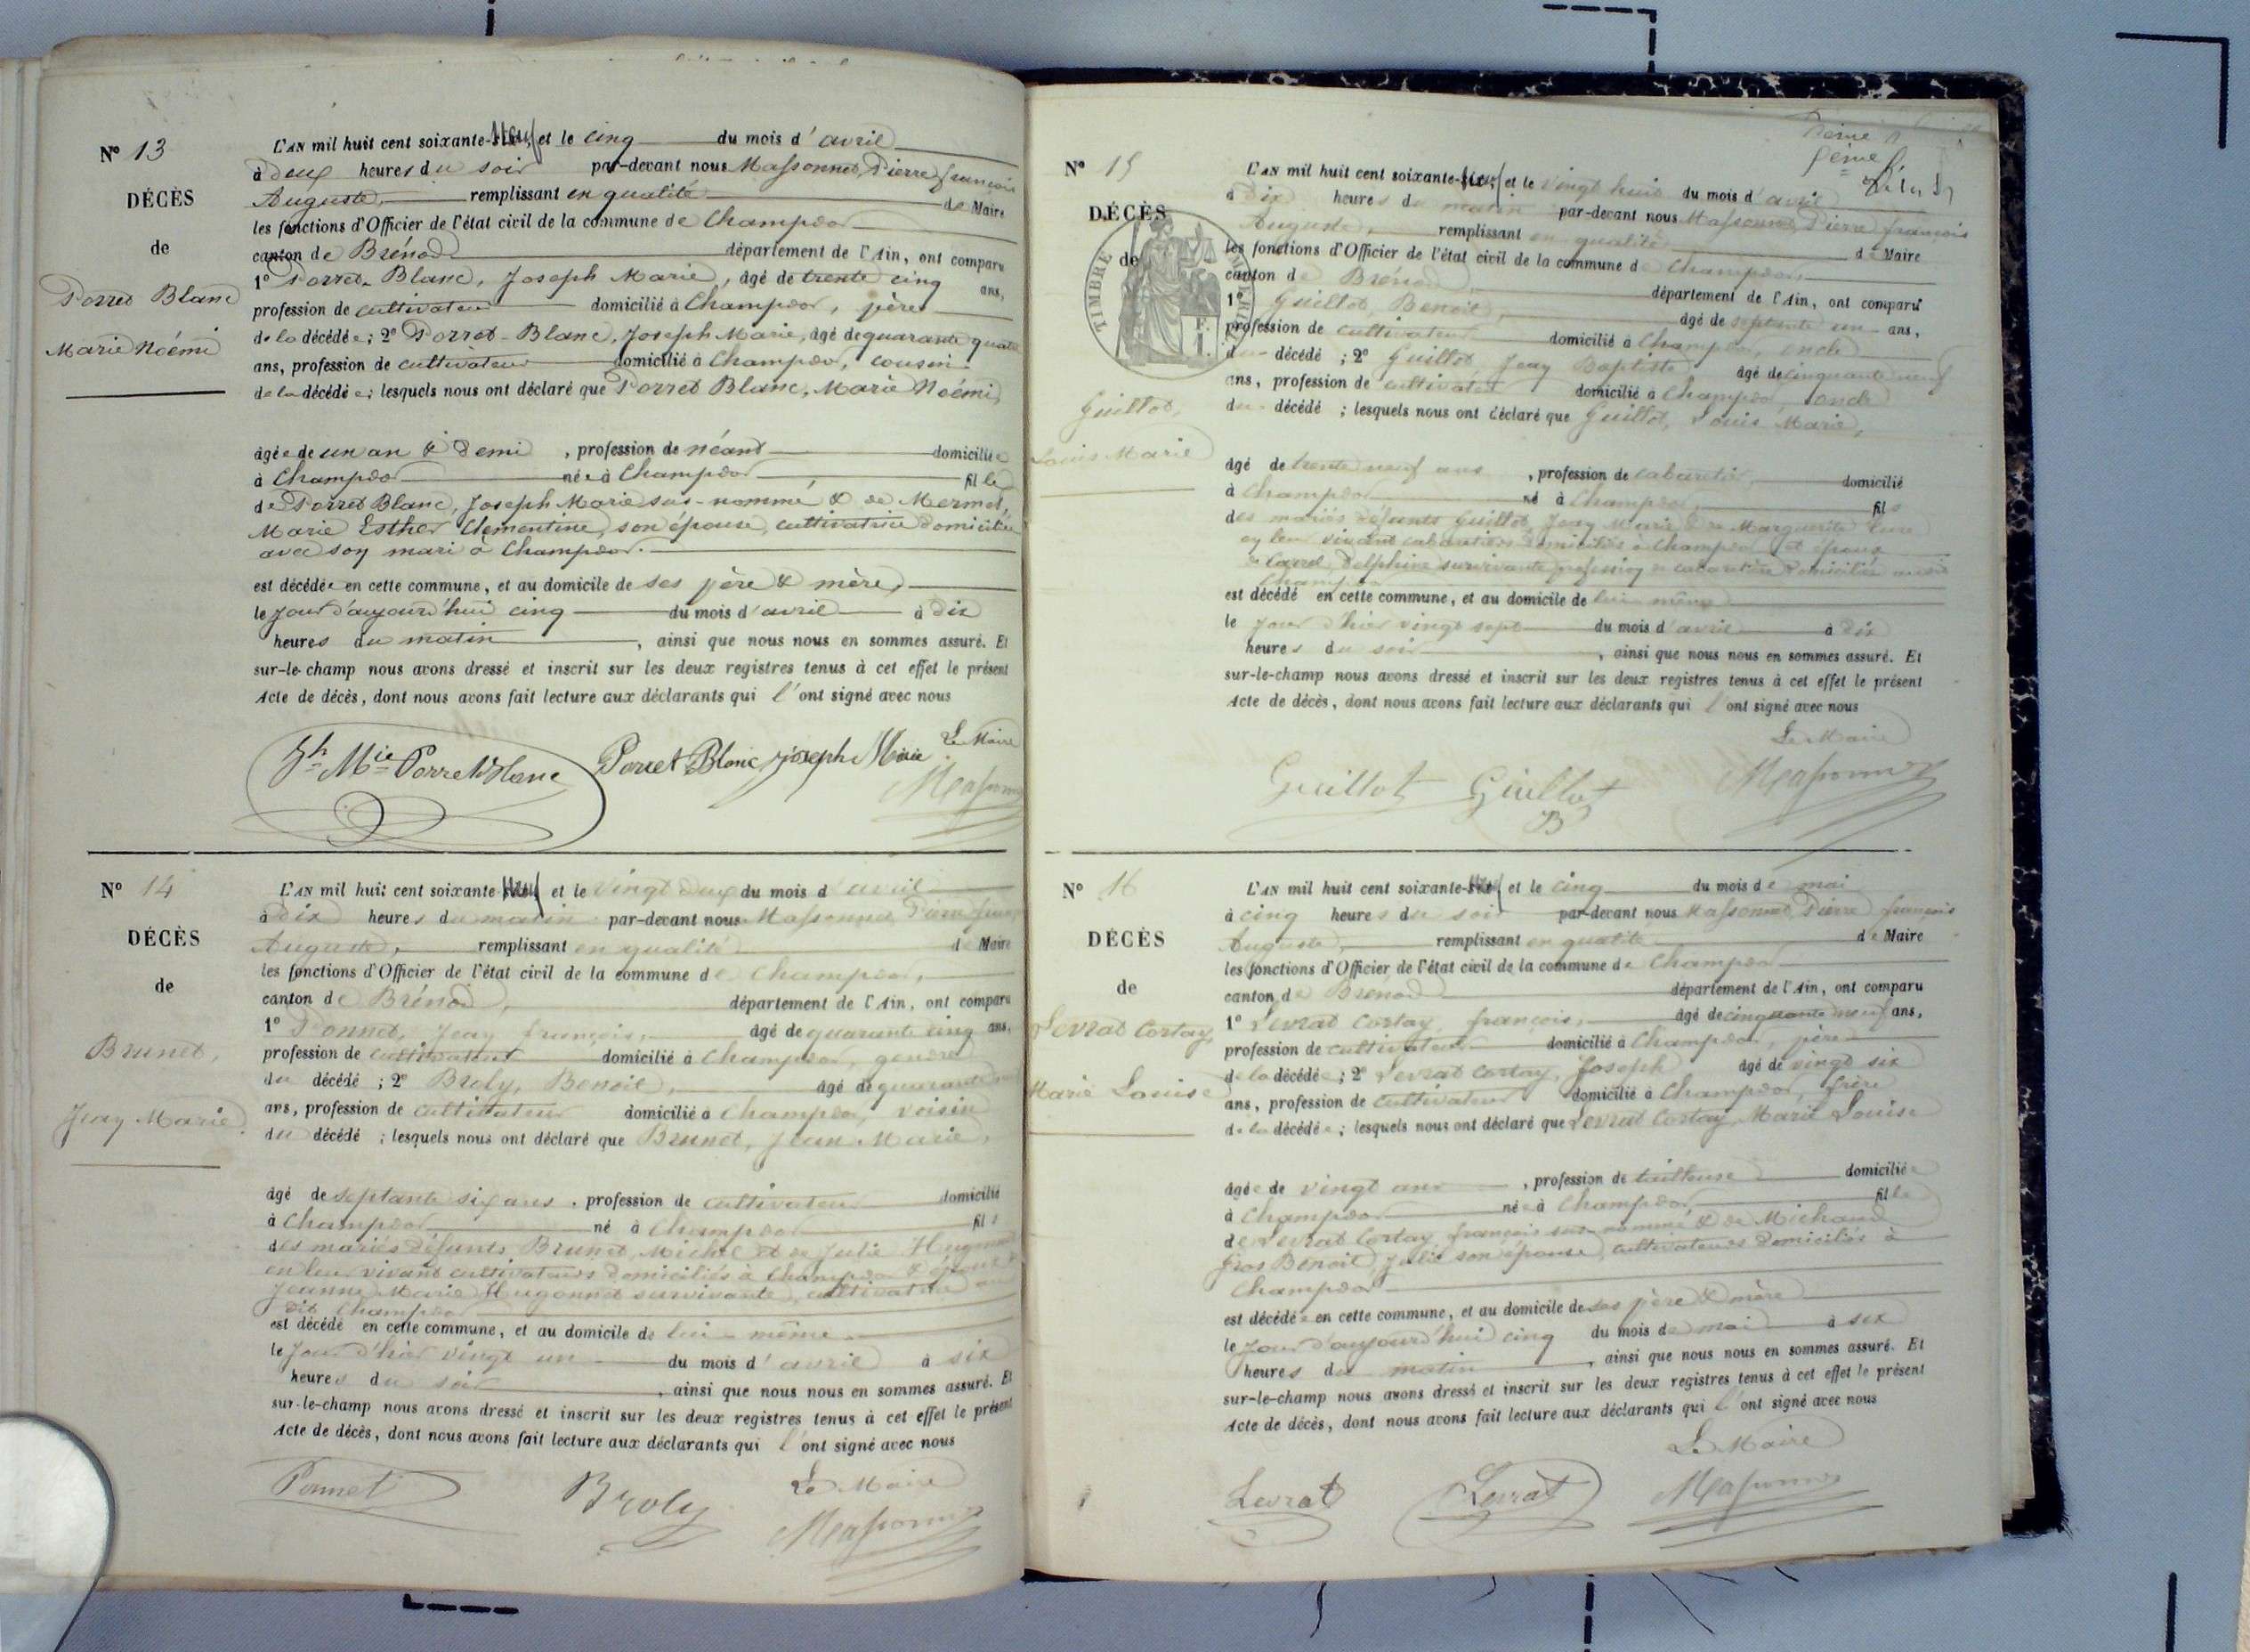 N° 13
DÉCÈS
de
Porret Blanc
Marie Noémi
L'AN mil huit cent soixante-neuf et le cinq du mois d'avril
à deux heures du soir par-devant nous Massonnet, Pierre françois
Auguste, remplissant en qualité de Maire
les fonctions d'Officier de l'état civil de la commune de Champdor
canton de Brénod département de l'Ain, ont comparu
1° Porret-Blanc, Joseph Marie, âgé de trente cinq ans,
profession de cultivateur domicilié à Champdor, père
de la décédée; 2° Porret-Blanc, Joseph Marie, âgé de quarante quatre
ans, profession de cultivateur domicilié à Champdor, cousin
de la décédée; lesquels nous ont déclaré que Porret Blanc, Marie Noémi,
âgée de un an & demi, profession de néant domiciliée
à Champdor née à Champdor fille
de Porret Blanc, Joseph Marie sus-nommé & de Mermet,
Marie Esther Clementine, son épouse, cultivatrice domiciliée
avec son mari à Champdor.
est décédée en cette commune, et au domicile de ses père & mère,
le jour d'aujourd'hui cinq du mois d'avril à dix
heures du matin, ainsi que nous nous en sommes assuré. Et
sur-le-champ nous avons dressé et inscrit sur les deux registres tenus à cet effet le présent
Acte de décès, dont nous avons fait lecture aux déclarants qui l'ont signé avec nous
Le Maire
Jh Mie Porret Blanc Porret Blanc joseph Marie Massonnet
N° 14
DÉCÈS
de
Brunet,
Jean Marie
L'AN mil huit cent soixante neuf et le vingt deux du mois d'avril
à dix heures du matin par-devant nous Massonnet Pierre françois
Auguste, remplissant en qualité de Maire
les fonctions d'Officier de l'état civil de la commune de Champdor,
canton de Brénod, département de l'Ain, ont comparu
1° Ponnet, Jean françois, âgé de quarante cinq ans,
profession de cultivateur domicilié à Champdor, gendre
du décédé; 2° Broly, Benoit, âgé de quarante
ans, profession de cultivateur domicilié à Champdor, voisin
du décédé; lesquels nous ont déclaré que Brunet, Jean Marie,
âgé de septante six ans, profession de cultivateur domicilié
à Champdor né à Champdor fils
des mariés défunts Brunet, Michel et de Julie Hugonnet
en leur vivant cultivateurs domiciliés à Champdor & époux
Jeanne Marie Hugonnet survivante, cultivatrice au
dit Champdor
est décédé en cette commune, et au domicile de lui-même
le jour d'hier vingt un du mois d'avril à six
heures du soir, ainsi que nous nous en sommes assuré. Et
sur-le-champ nous avons dressé et inscrit sur les deux registres tenus à cet effet le présent
Acte de décès, dont nous avons fait lecture aux déclarants qui l'ont signé avec nous
Le Maire
Ponnet Broly Massonnet
N° 15
DÉCÈS
de
TIMBRE
Guillot,
Louis Marie
L'AN mil huit cent soixante-neuf et le vingt huit du mois d'avril
à dix heures du matin par-devant nous Massonnet, Pierre françois
Auguste, remplissant en qualité de Maire
les fonctions d'Officier de l'état civil de la commune de Champdor,
canton de Brénod département de l'Ain, ont comparu
1° Guillot, Benoit, âgé de septante un ans,
profession de cultivateur domicilié à Champdor, oncle
du décédé; 2° Guillot, Jean Baptiste âgé de cinquante neuf
ans, profession de cultivateur domicilié à Champdor, oncle
du décédé; lesquels nous ont déclaré que Guillot, Louis Marie,
âgé de trente neuf ans, profession de cabaretier, domicilié
à Champdor né à Champdor, fils
des mariés défunts Guillot, Jean Marie & de Marguerite
en leur vivant cabaretiers domiciliés à Champdor et époux
de Carrel, Delphine survivante profession de cabaretière domiciliée
Champdor
est décédé en cette commune, et au domicile de lui-même
le jour d'hier vingt sept du mois d'avril à dix
heures du soir, ainsi que nous nous en sommes assuré. Et
sur-le-champ nous avons dressé et inscrit sur les deux registres tenus à cet effet le présent
Acte de décès, dont nous avons fait lecture aux déclarants qui l'ont signé avec nous
Le Maire
Guillot Guillot B Massonnet
N° 16
DÉCÈS
de
Levrat Cortay,
Marie Louise
L'AN mil huit cent soixante-neuf et le cinq du mois de mai
à cinq heures du soir par-devant nous Massonnet, Pierre françois
Auguste, remplissant en qualité de Maire
les fonctions d'Officier de l'état civil de la commune de Champdor
canton de Brénod département de l'Ain, ont comparu
1° Levrat Cortay, françois, âgé de cinquante neuf ans,
profession de cultivateur domicilié à Champdor, père
de la décédée; 2° Levrat Cortay, Joseph âgé de vingt six
ans, profession de cultivateur domicilié à Champdor, frère
de la décédée; lesquels nous ont déclaré que Levrat Cortay, Marie Louise
âgée de vingt ans, profession de tailleuse domiciliée
à Champdor née à Champdor, fille
de Levrat Cortay, françois sus-nommé & de Michaud
gros Benoit, Julie son épouse, cultivateurs domiciliés à
Champdor
est décédée en cette commune, et au domicile de ses père & mère
le jour d'aujourd'hui cinq du mois de mai à six
heures du matin, ainsi que nous nous en sommes assuré. Et
sur-le-champ nous avons dressé et inscrit sur les deux registres tenus à cet effet le présent
Acte de décès, dont nous avons fait lecture aux déclarants qui l'ont signé avec nous
Le Maire
Levrat Levrat Massonnet